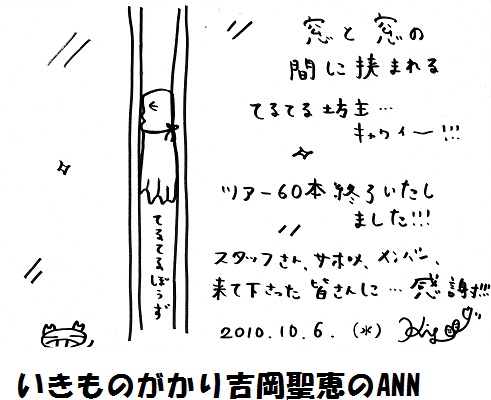 窓と窓の
間に挟まれる
てるてる坊主…
キャワイー!!!
ツアー60本終了いたし
ました!!!
スタッフさん、サポメ、メンバー、
来て下さった皆さんに…感謝!!!
2010.10.6.(*)
てるてるぼうず
いきものがかり吉岡聖恵のANN